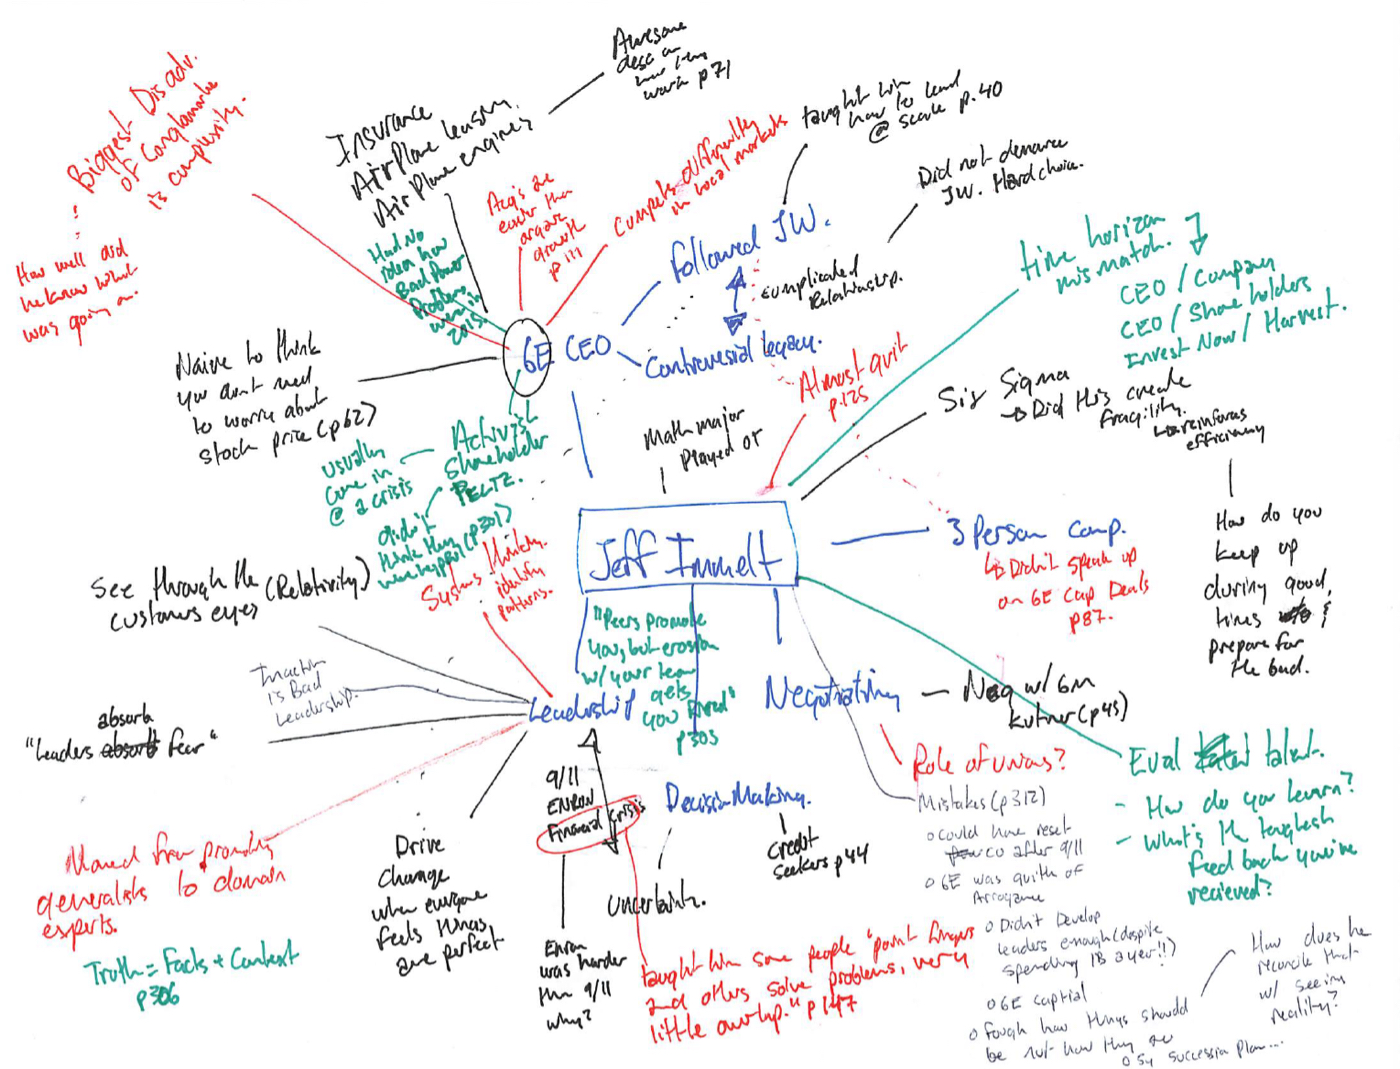 Biggest Disadv.
of Conglamorate
is complexity.
How well did
he know what
was going on.
Insurance
Airplane leasing.
Airplane engines
Awesome
desc on
how they
work p71
Had No
idea how
Bad Power
Problems
were in
2015.
Acq's are
easier than
organic
growth
p111
Compete differently
in local markets
taught him
how to lead
@ scale p.40
followed JW.
Did not denounce
JW. Hard choice.
complicated
Relationship.
Controversial legacy.
time horizon
mismatch.
CEO / Company
CEO / Share holders
Invest Now / Harvest.
GE CEO
Naive to think
you don't need
to worry about
stock price (p62)
Almost quit
p.125
Six Sigma
→ Did this create
fragility.
↳ reinforces
efficiency
Math major
Played OT
Activist
shareholder
PELTZ.
usually
come in
@ a crisis
didn't
think they
were hyprd (p301)
Systems thinking.
identify
patterns.
Jeff Immelt
3 Person Comp.
↳ Didn't speak up
on GE Cap Deals
p87.
How do you
keep up
during good
times &
prepare for
the bad.
See through the (Relativity)
customers eyes
Inaction
is Bad
Leadership.
absorb
"Leaders absorb fear"
Leadership
"Peers promote
you, but erosion
w/ your team
gets
you fired"
p303
Negotiating — Neg w/ GM
Kutner (p45)
Role of unions?
Mistakes (p312)
o Could have reset
co after 9/11
o GE was guilty of
Arrogance
o Didn't Develop
leaders enough (despite
spending 1B a year!!)
o GE captial
o fough how things should
be not how they are
o 5y succession plan...
How does he
reconcile that
w/ seeing
reality?
Eval talent.
- How do you learn?
- What's the toughest
feed back you've
recieved?
9/11
ENRON
Financial Crisis
Decision Making.
Credit
Seekers p44
uncertainty.
Drive
Change
when everyone
feels things
are perfect
Moved from promoting
generalists to domain
experts.
Truth = Facts + Context
p306
Enron
was harder
than 9/11
why?
taught him some people "point fingers
and others solve problems, very
little overlap." p147